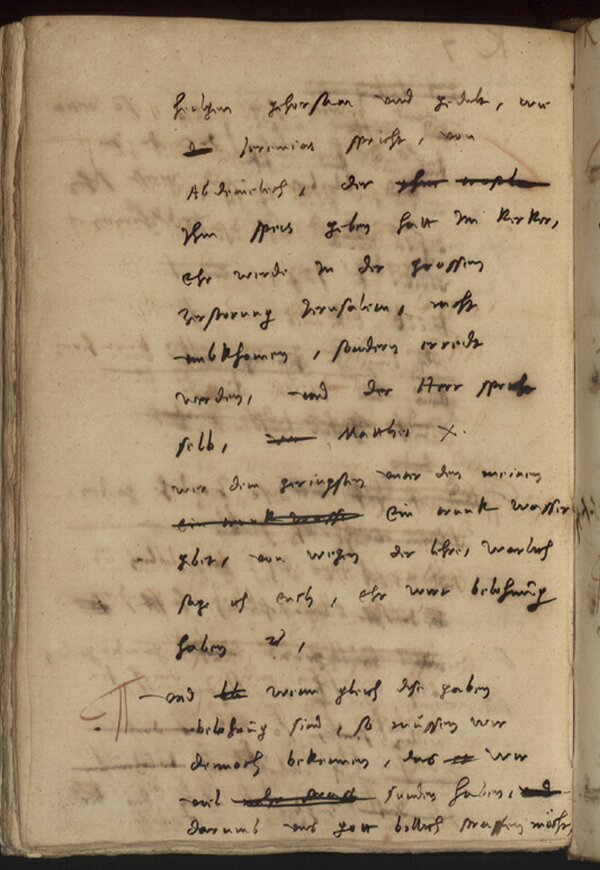 heilgen gehorsam und gedult, wie
die Jeremias spricht, von
Abdemelech, der
ihm speis geben hatt im kerker,
Ehr werde in der grossen
zerstorung Jerusalem, nicht
umbkhomen, sondern erredt
werden, und der Herr spricht
selb, Matthei X.
wer dem geringsten unter den meinen
ein trunk wasser Ein trunk wasser
gibet, von wegen der lehre, warlich
sage ich Euch, Ehr wirt belohnung
haben etc,
und wenn gleich dise gaben
belohnung sind, so müssen wir
dennoch bekennen, das wir
viel sunden haben,
darumb uns gott billich straffen möcht